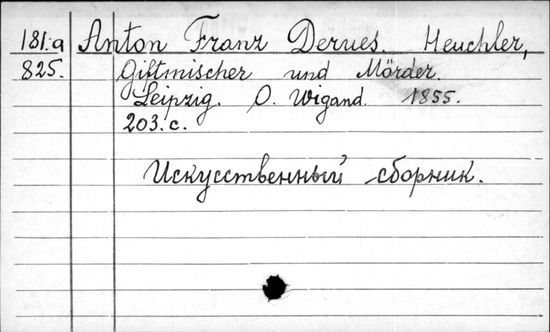 181:a Anton Franz Derues. Heuchler,
825. Giftmischer und Mörder.
Leipzig. O. Wigand. 1855.
203.c.
Искусственный сборник.